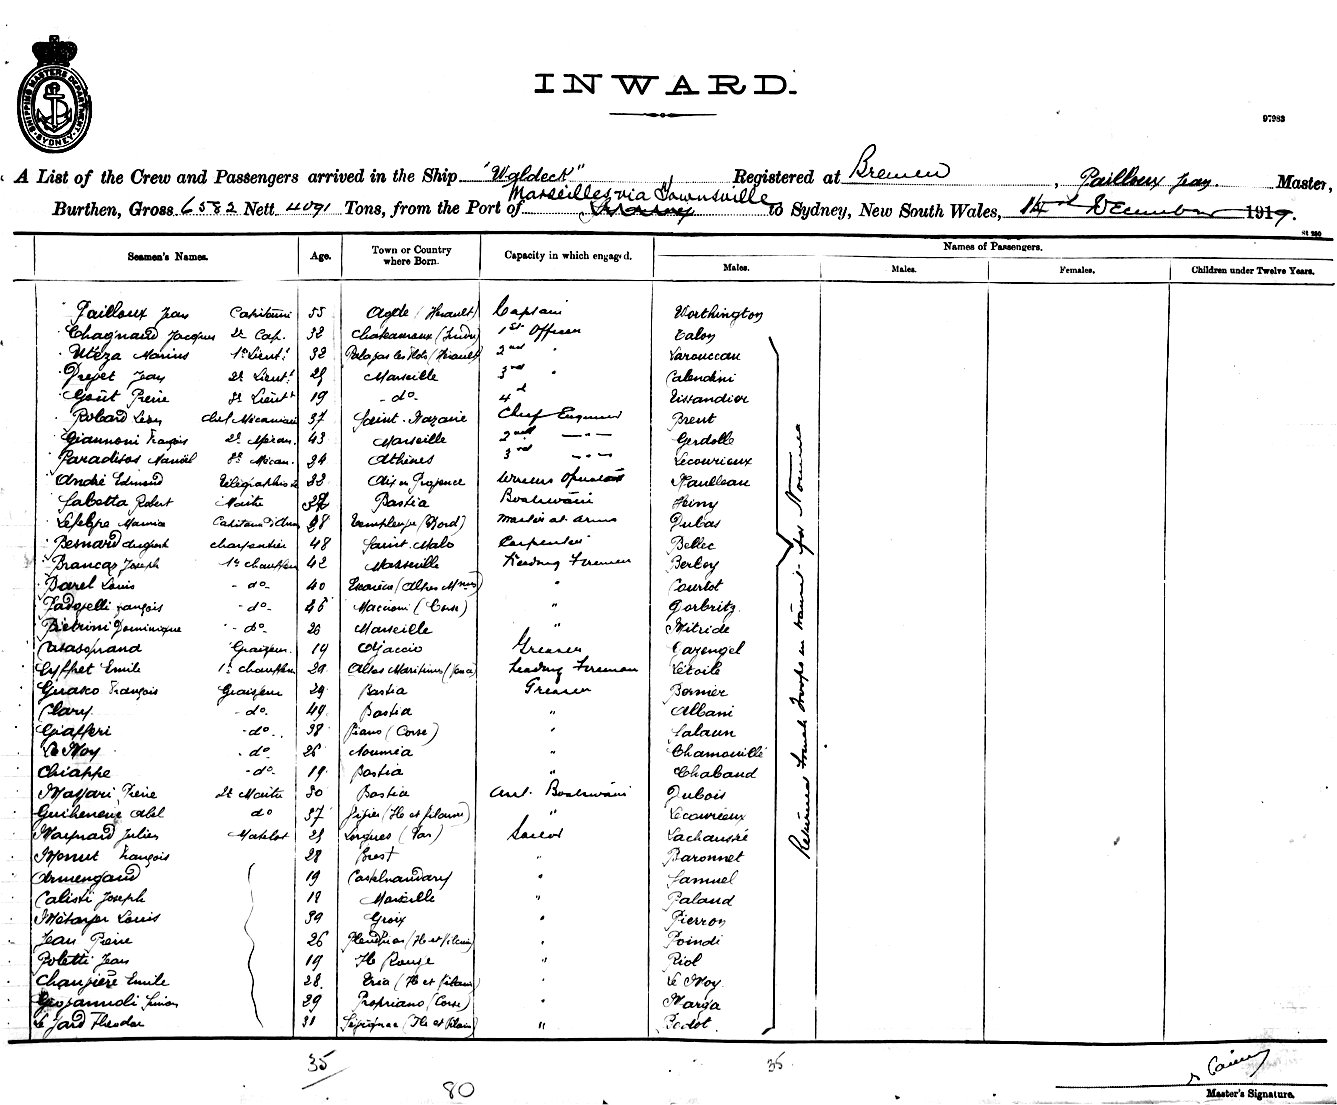 SHIPPING MASTERS DEPARTMENT SYDNEY
INWARD.
97983
A List of the Crew and Passengers arrived in the Ship "Waldeck" Registered at Bremen, Pailloux Jean. Master,
Burthen, Gross 6582 Nett 4091 Tons, from the Port of Marseilles via Townsville to Sydney, New South Wales, 14th December 1919.
Seamen's Names. Age. Town or Country where Born. Capacity in which engaged. Names of Passengers.
Males. Males. Females. Children under Twelve Years.
Pailloux Jean Capitaine 55 Agde (Herault) Captain Worthington
Chagnaud Jacques 2d Cap. 32 Chateauroux (Indre) 1st Officer Talon
Uteza Marius 1r Lieut. 32 (Herault) 2nd "
Jean 2d Lieut. Marseille 3rd " Calendini
Goût Pierre 3e Lieutt 19 - do - 4th Tissandier
Robard Leon chef Mecanicien 37 Saint-Nazaire Chief Engineer Brent
Giannoni François 2d Mecan. 43 Marseille 2nd -"- Gerdolle
Paradisos Manuel 3e Mecan. 24 Athènes 3rd -"- Lecourieux
André Edmond Télégraphiste 33 Aix en Provence Wireless Operator Nauleau
Sabetta Robert Maitre Bastia Boatswain
Capitaine d'Armes (Nord) Master at arms Dubas
Bernard August charpentier 48 Saint-Malo Carpenter Bellec
Brancaz Joseph 1e chauffeur 42 Marseille Leading Fireman
Borel Louis - do - 40 " Courtot
François - do - 46 (Corse) " Gorbritz
Pietrini Dominique - do - 26 Marseille " Mitride
Casasoprana Graisseur 19 Ajaccio Greaser Cazengel
Eyffret Emile 1e chauffeur 29 Alpes Maritimes Leading Fireman Letoile
Guasco François Graisseur 29 Bastia Greaser Bernier
Clary - do - 49 Bastia " Albani
Giafferi - do - 38 Piano (Corse) " Salaun
Le Noy - do - 26 Nouméa " Chamouillé
Chiappe - do - 19 Bastia " Chabaud
Massari Pierre 2d Maitre 30 Bastia Asst. Boatswain Dubois
Abel do 37 (Ile et Vilaine) " Lecourieux
Maynard Julien Matelot Lorgues (Var) Sailor
Monnet François 28 Brest " Baronnet
Armengaud 19 Castelnaudary " Samuel
Calisti Joseph 18 Marseille " Paland
Métayer Louis 39 Groix " Pierron
Jean Pierre 26 (Ile et Vilaine) " Poindi
Poletti Jean 19 Ile Rousse " Riol
Emile 28 (Ile et Vilaine) " Le Noy
Simon 29 Propriano (Corse) Warga
Le Jard Theodor 31 (Ile et Vilaine) "
Returned French Troops in transit for Noumea
35 35
80
Master's Signature.